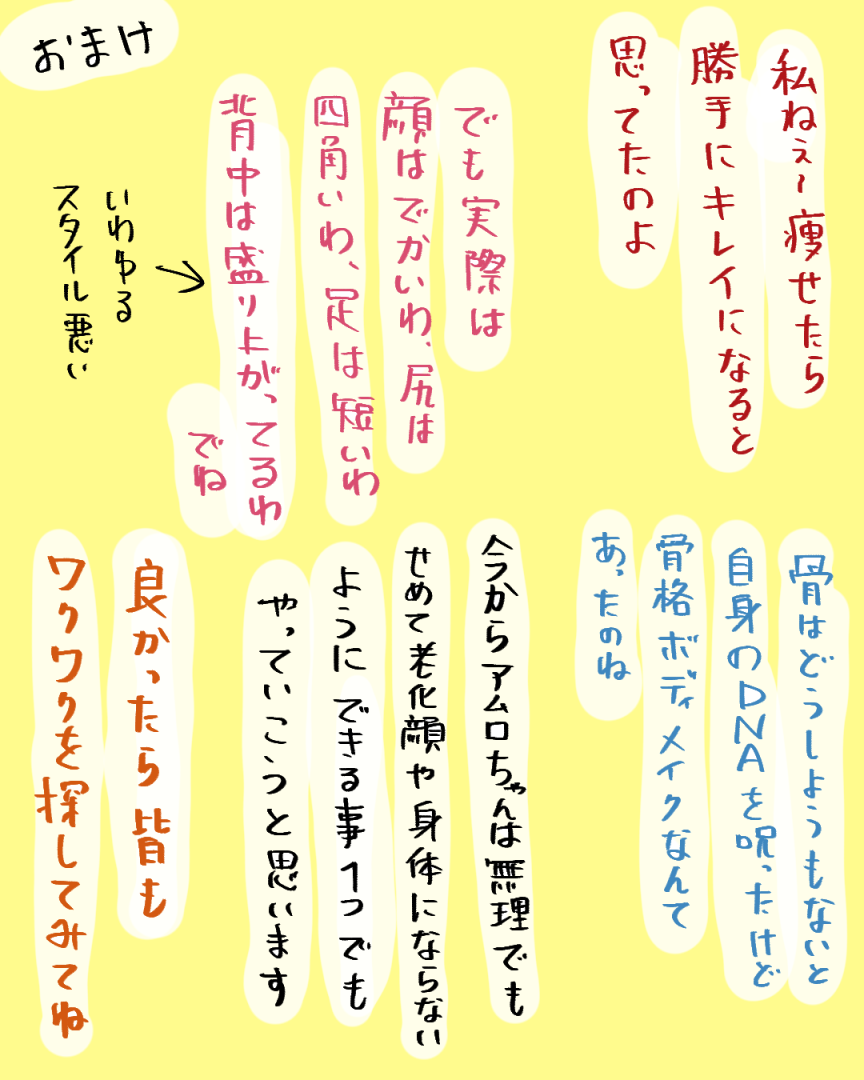 おまけ
私ねぇ〜痩せたら
勝手にキレイになると
思ってたのよ
でも実際は
顔はでかいわ、尻は
四角いわ、足は短いわ
背中は盛り上がってるわ
でね
いわゆる
スタイル悪い
骨はどうしようもないと
自身のDNAを呪ったけど
骨格ボディメイクなんて
あったのね
今からアムロちゃんは無理でも
せめて老化顔や身体にならない
ようにできる事1つでも
やっていこうと思います
良かったら皆も
ワクワクを探してみてね